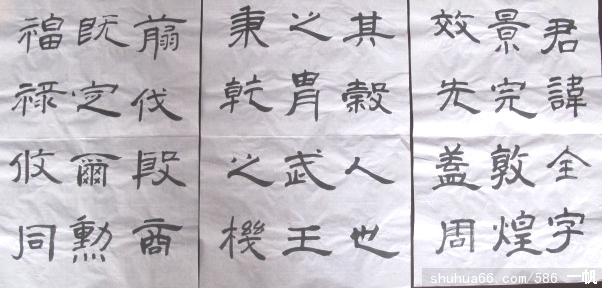 君諱全字
景完敦煌
效先盖周
其穀人也
之胄武王
秉乾之機
翦伐殷商
既定爾勳
福禄攸同
shuhua66.com/586 一帆